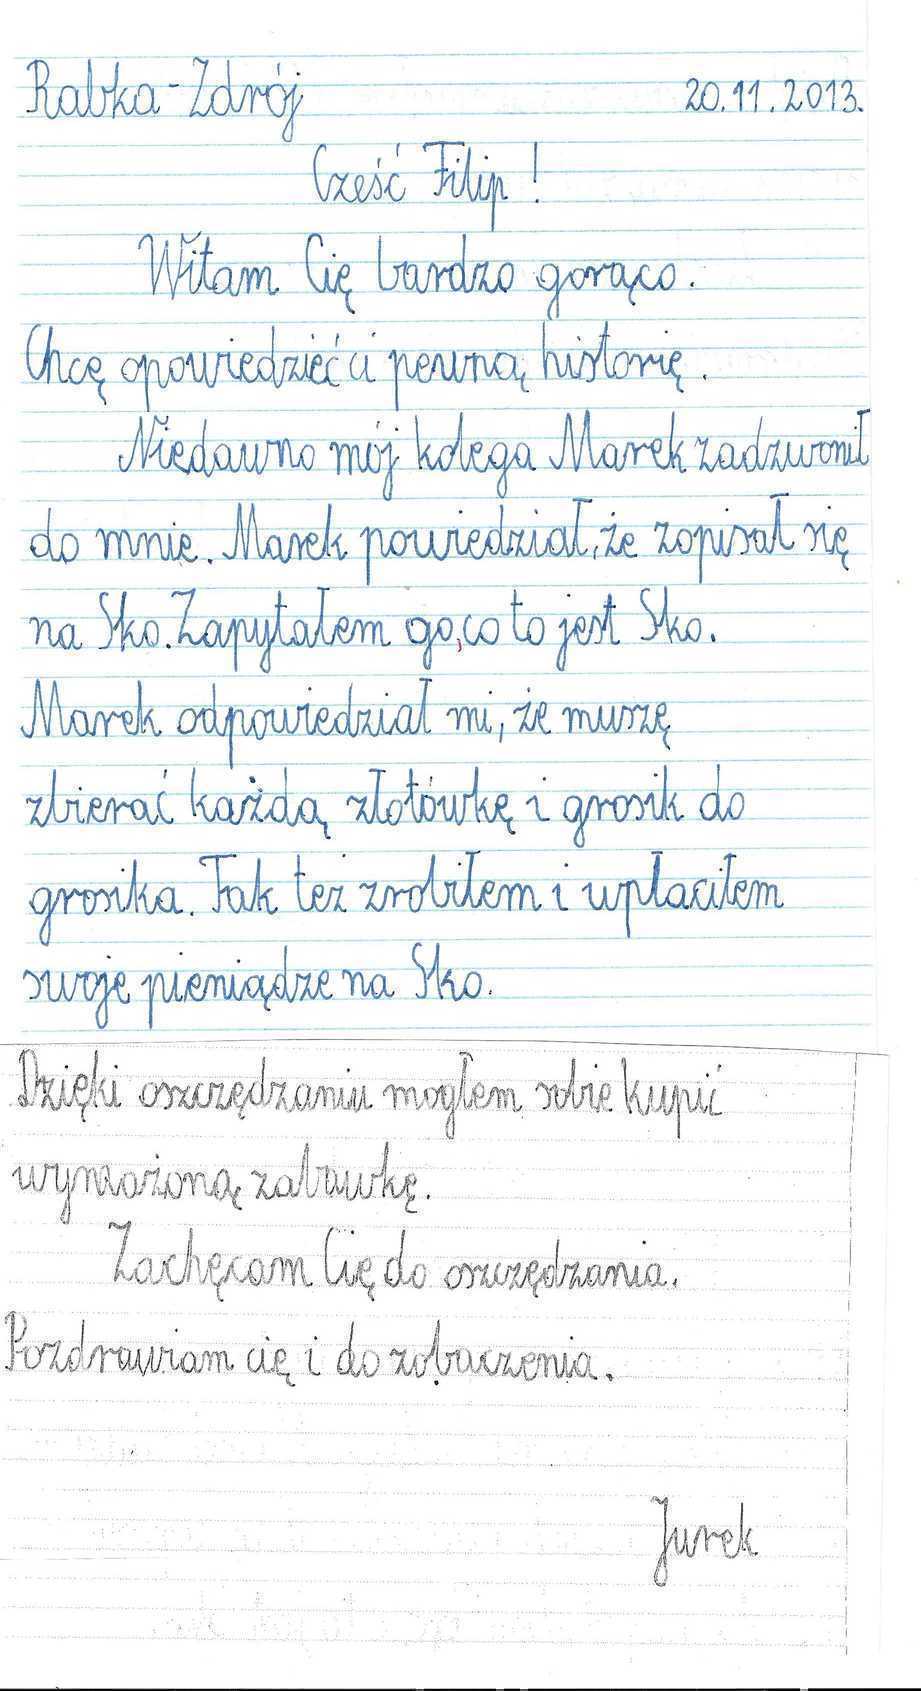 Rabka-Zdrój 20.11.2013.
Cześć Filip!
Witam Cię bardzo gorąco.
Chcę opowiedzieć ci pewną historię.
Niedawno mój kolega Marek zadzwonił
do mnie. Marek powiedział, że zapisał się
na Sko. Zapytałem go, co to jest Sko.
Marek odpowiedział mi, że muszę
zbierać każdą złotówkę i grosik do
grosika. Tak też zrobiłem i wpłaciłem
swoje pieniądze na Sko.
Dzięki oszczędzaniu mogłem sobie kupić
wymarzoną zabawkę.
Zachęcam Cię do oszczędzania.
Pozdrawiam cię i do zobaczenia.
Jurek